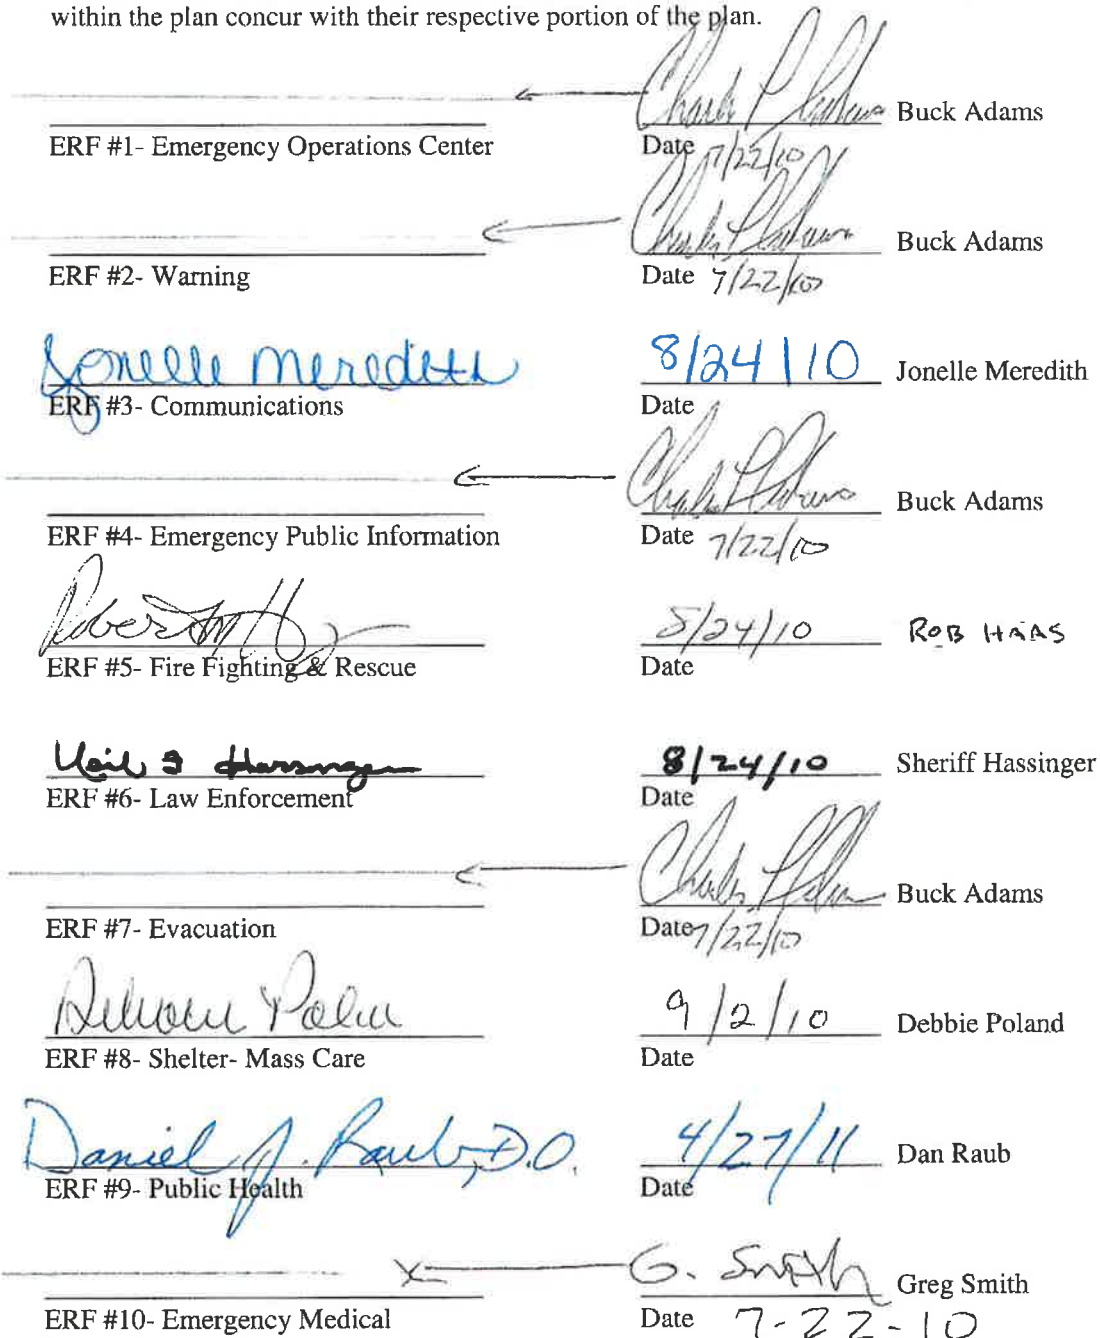 within the plan concur with their respective portion of the plan.
Buck Adams
ERF #1- Emergency Operations Center Date 7/22/10
Buck Adams
ERF #2- Warning Date 7/22/10
Jonelle Meredith 8/24/10 Jonelle Meredith
ERF #3- Communications Date
Buck Adams
ERF #4- Emergency Public Information Date 7/22/10
8/24/10 ROB HAAS
ERF #5- Fire Fighting & Rescue Date
8/24/10 Sheriff Hassinger
ERF #6- Law Enforcement Date
Buck Adams
ERF #7- Evacuation Date 7/22/10
9/2/10 Debbie Poland
ERF #8- Shelter- Mass Care Date
Daniel J. Raub, D.O. 4/27/11 Dan Raub
ERF #9- Public Health Date
G. Smith Greg Smith
ERF #10- Emergency Medical Date 7-22-10